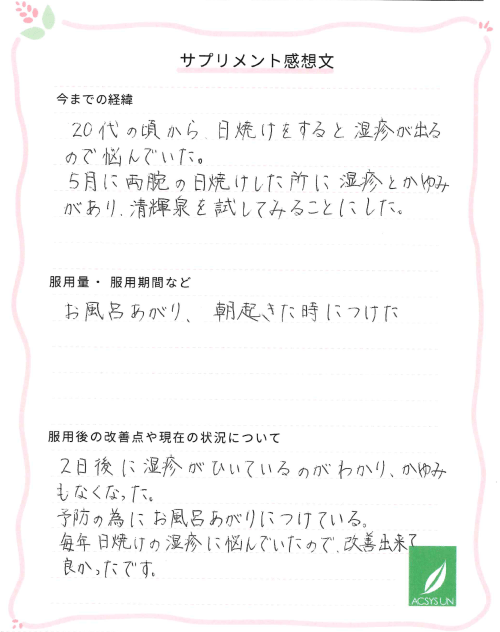 サプリメント感想文
今までの経緯
20代の頃から、日焼けをすると湿疹が出る
ので悩んでいた。
5月に両腕の日焼けした所に湿疹とかゆみ
があり、清輝泉を試してみることにした。
服用量・服用期間など
お風呂あがり、朝起きた時につけた
服用後の改善点や現在の状況について
2日後に湿疹がひいているのがわかり、かゆみ
もなくなった。
予防の為にお風呂あがりにつけている。
毎年日焼けの湿疹に悩んでいたので、改善出来て
良かったです。
ACSYS UN